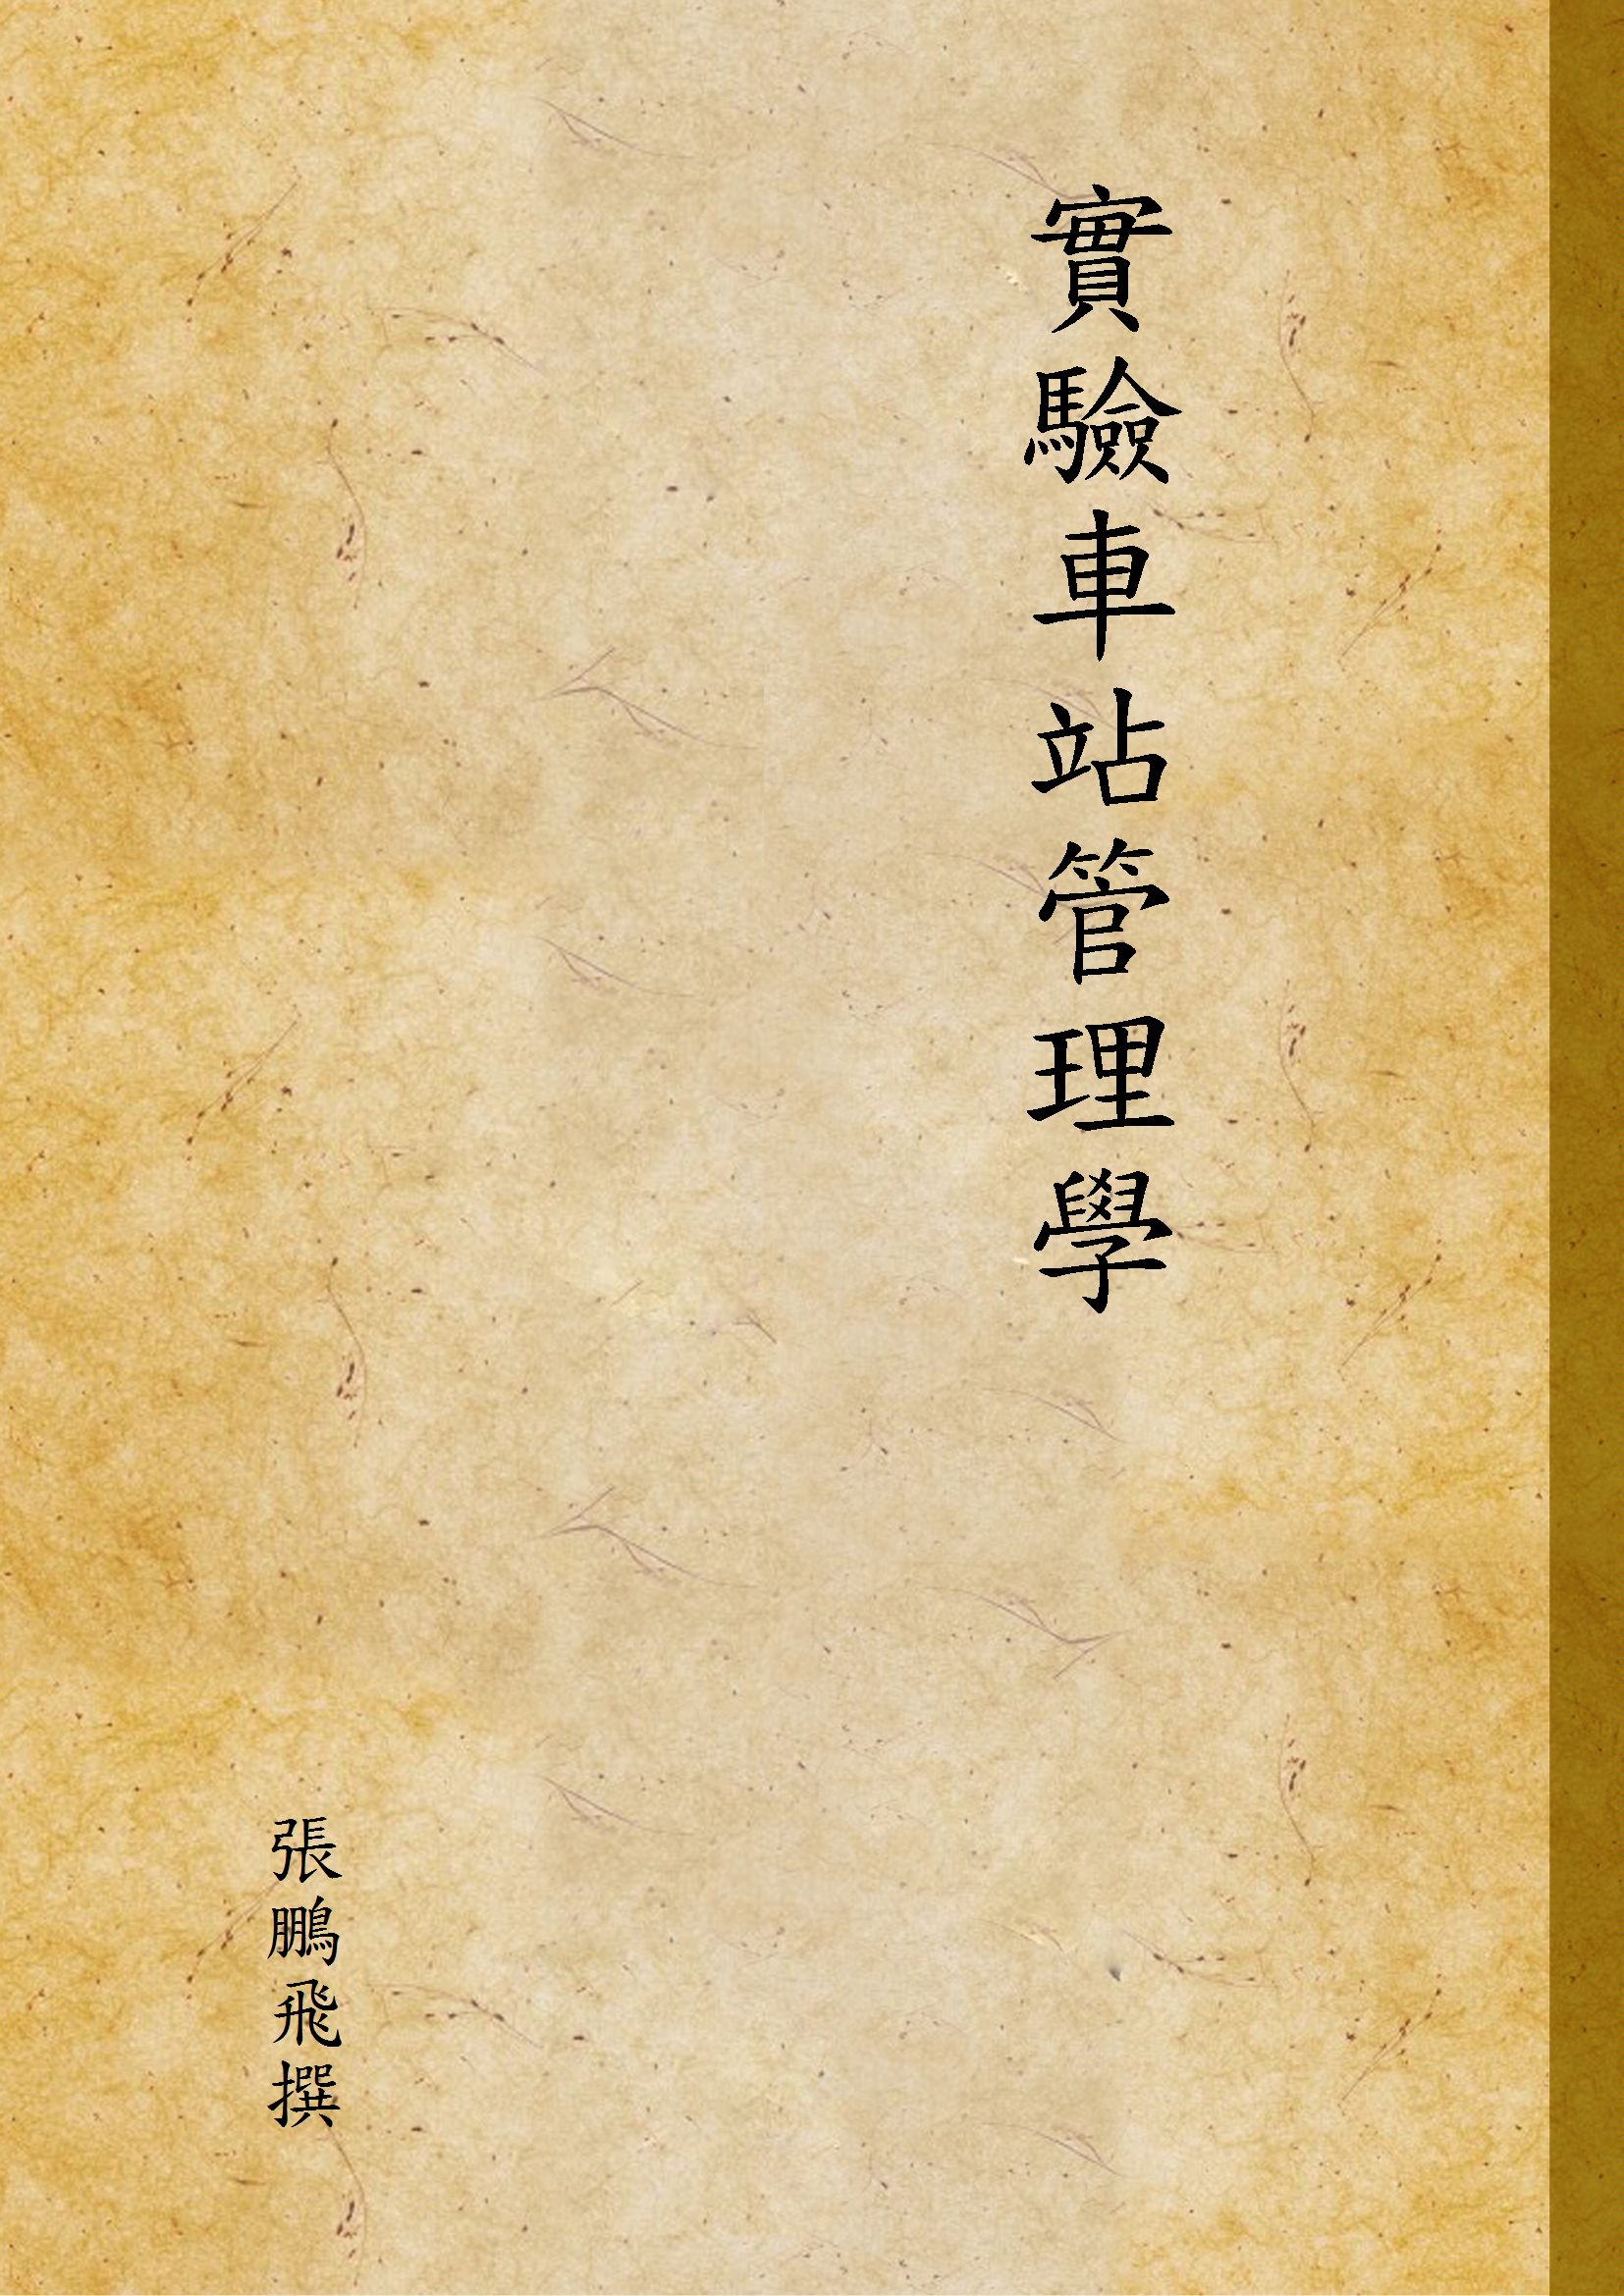 實驗車站管理學
張鵬飛撰